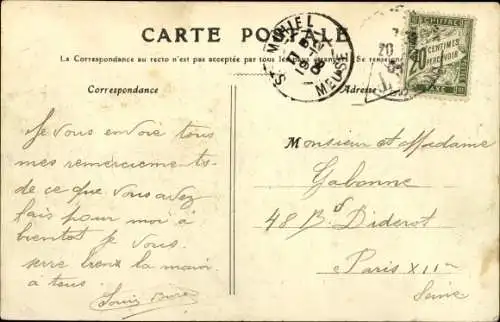 CARTE POSTALE
La Correspondance au recto n'est pas acceptée par tous les
(Se renseigner
Correspondance
Adresse
ST MIHIEL
MEUSE
CHIFFRE
CENTIMES
A PERCEVOIR
TAXE
Je vous envoie tous
mes remercieme ts
de ce que vous avez
fais pour moi à
bientot je vous
serre bien la main
a tous.
Louis
Monsieur et Madame
Gabanne
48 Bd Diderot
Paris XII
Seine